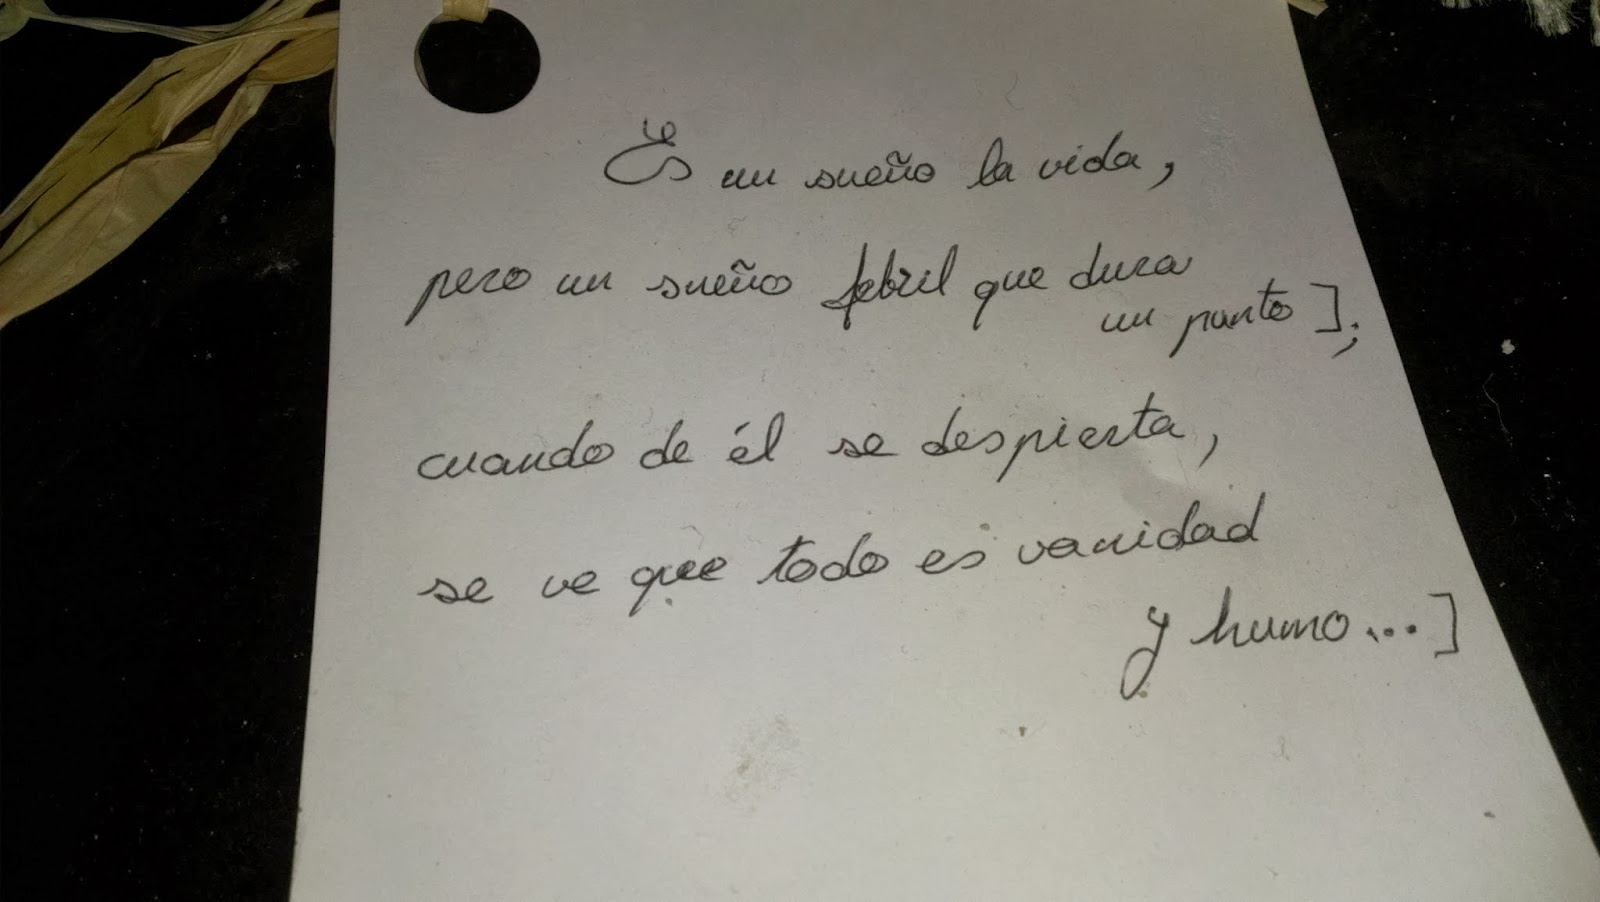 Es un sueño la vida,
pero un sueño febril que dura
un punto];
cuando de él se despierta,
se ve que todo es vanidad
y humo...]